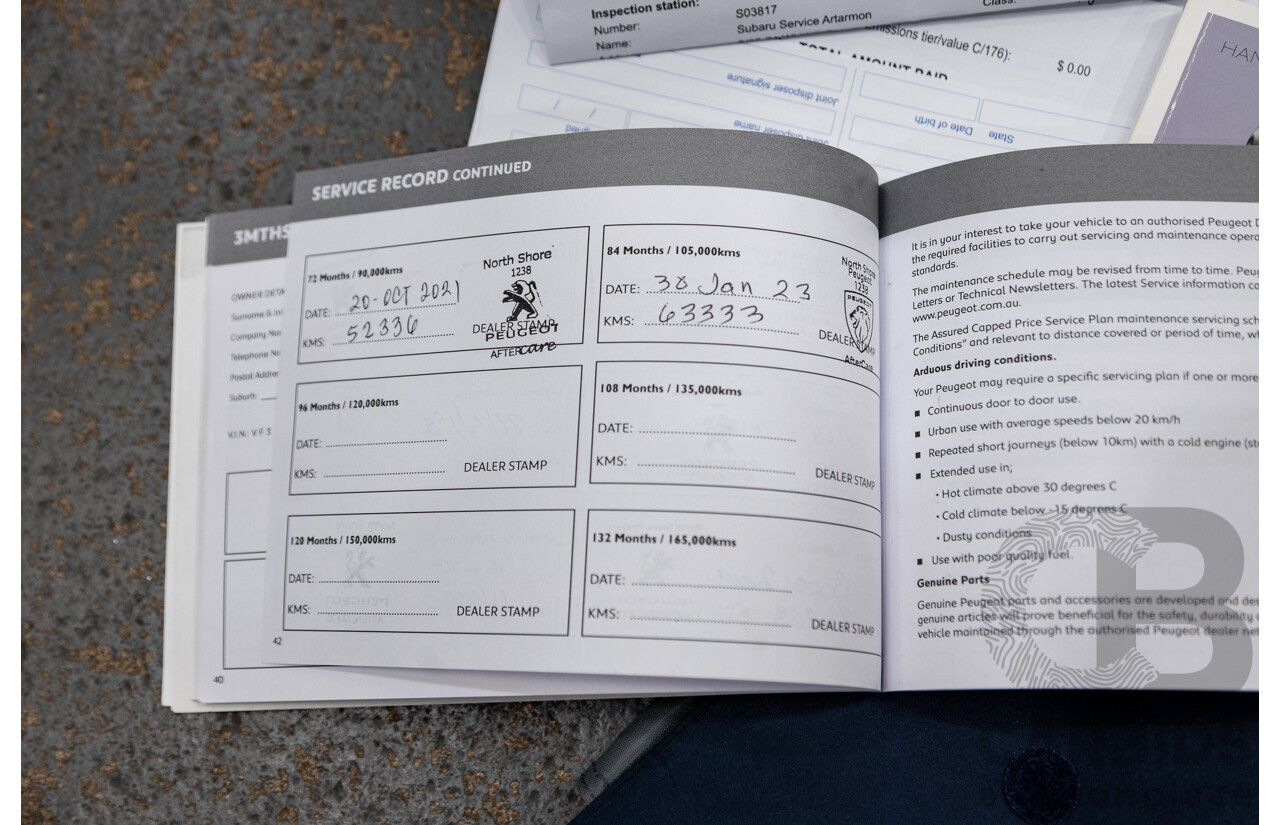 Inspection station:
Number:
Name:
S03817
Subaru Service Artarmon
Class:
emissions tier/value C/176):
$ 0.00
TOTAL AMOUNT PAID
Joint disposer signature
Joint disposer name
Date of birth
State
HAN
SERVICE RECORD CONTINUED
3MTHS
OWNER DETA
Surname & In
Company Na
Telephone N
Postal Addre
Suburb:
V.I.N.: V F 3
72 Months / 90,000kms
DATE: 20-OCT 2021
KMS: 52336
North Shore
1238
DEALER STAMP
PEUGEOT
AFTERCare
84 Months / 105,000kms
DATE: 30 Jan 23
KMS: 63333
North Shore
Peugeot
1238
PEUGEOT
DEALER STAMP
AfterCare
96 Months / 120,000kms
DATE:
KMS:
DEALER STAMP
108 Months / 135,000kms
DATE:
KMS:
DEALER STAMP
120 Months / 150,000kms
DATE:
KMS:
DEALER STAMP
132 Months / 165,000kms
DATE:
KMS:
DEALER STAMP
42
40
It is in your interest to take your vehicle to an authorised Peugeot D
the required facilities to carry out servicing and maintenance opera
standards.
The maintenance schedule may be revised from time to time. Peug
Letters or Technical Newsletters. The latest Service information ca
www.peugeot.com.au.
The Assured Capped Price Service Plan maintenance servicing sch
Conditions" and relevant to distance covered or period of time, wh
Arduous driving conditions.
Your Peugeot may require a specific servicing plan if one or more
■ Continuous door to door use.
■ Urban use with average speeds below 20 km/h
■ Repeated short journeys (below 10km) with a cold engine (st
■ Extended use in;
• Hot climate above 30 degrees C
• Cold climate below -15 degrees C
• Dusty conditions
■ Use with poor quality fuel.
Genuine Parts
Genuine Peugeot parts and accessories are developed and des
genuine articles will prove beneficial for the safety, durability
vehicle maintained through the authorised Peugeot dealer net